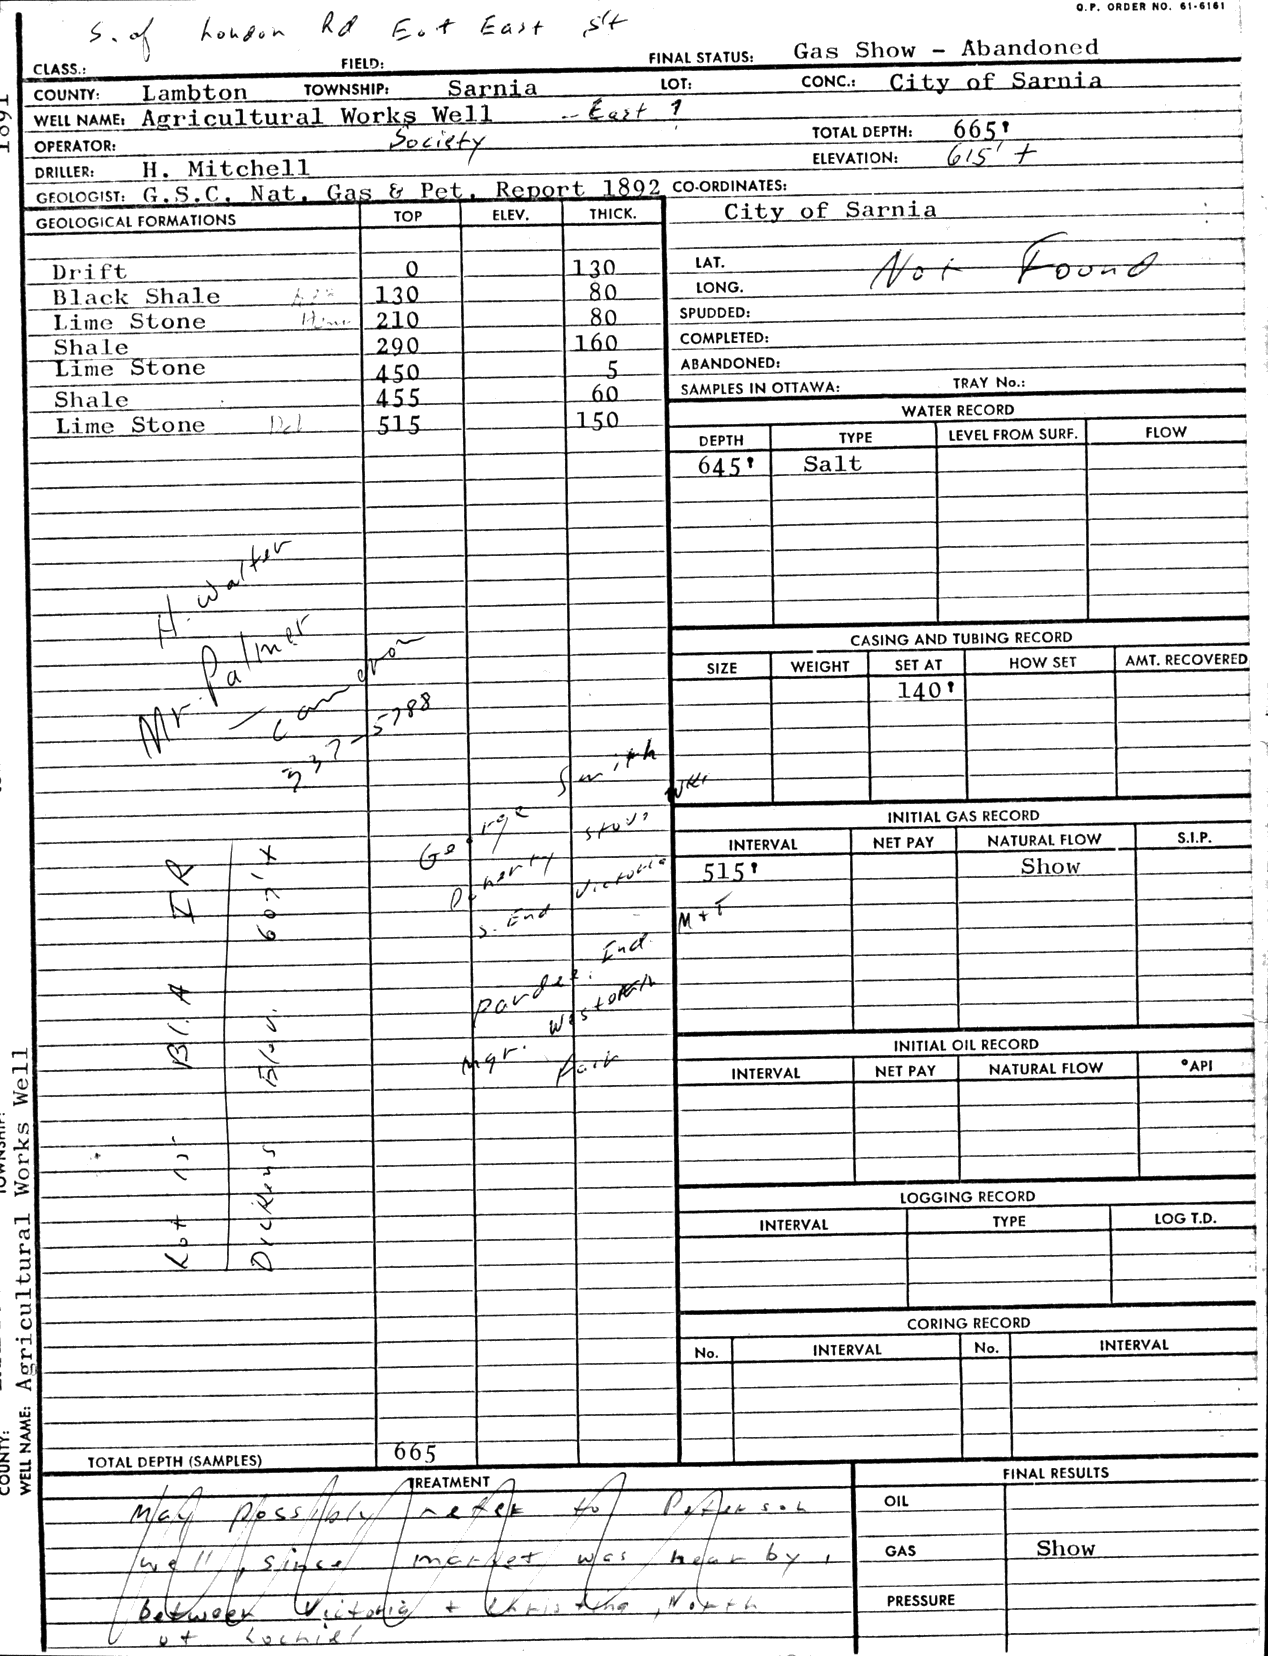 O.P. ORDER NO. 61-6161
S. of London Rd East East St
CLASS.: FIELD: FINAL STATUS: Gas Show - Abandoned
COUNTY: Lambton TOWNSHIP: Sarnia LOT: CONC.: City of Sarnia
WELL NAME: Agricultural Works Well - East ?
OPERATOR: Society TOTAL DEPTH: 665'
DRILLER: H. Mitchell ELEVATION: 615' +
GEOLOGIST: G.S.C. Nat. Gas & Pet. Report 1892 CO-ORDINATES:
City of Sarnia
GEOLOGICAL FORMATIONS TOP ELEV. THICK.
Drift 0 130
Black Shale 130 80
Lime Stone 210 80
Shale 290 160
Lime Stone 450 5
Shale 455 60
Lime Stone Del 515 150
LAT. Not Found
LONG.
SPUDDED:
COMPLETED:
ABANDONED:
SAMPLES IN OTTAWA: TRAY No.:
WATER RECORD
DEPTH TYPE LEVEL FROM SURF. FLOW
645' Salt
H. Walter
Mr. Palmer
- Cameron
337-5788
CASING AND TUBING RECORD
SIZE WEIGHT SET AT HOW SET AMT. RECOVERED
140'
George Smith
Doherty Stove
S. End Victoria
M + T
Pardee. Ind.
Mgr. Western
Fair
INITIAL GAS RECORD
INTERVAL NET PAY NATURAL FLOW S.I.P.
515' Show
INITIAL OIL RECORD
INTERVAL NET PAY NATURAL FLOW °API
LOGGING RECORD
INTERVAL TYPE LOG T.D.
CORING RECORD
No. INTERVAL No. INTERVAL
Lot 15 Bl. A IR
Dickens Elev. 607'X
TOTAL DEPTH (SAMPLES) 665
TREATMENT
May possibly refer to Peterson
well, since market was near by,
between Victoria + Christina, North
of Lochiel
FINAL RESULTS
OIL
GAS Show
PRESSURE
1891
COUNTY: TOWNSHIP:
WELL NAME: Agricultural Works Well